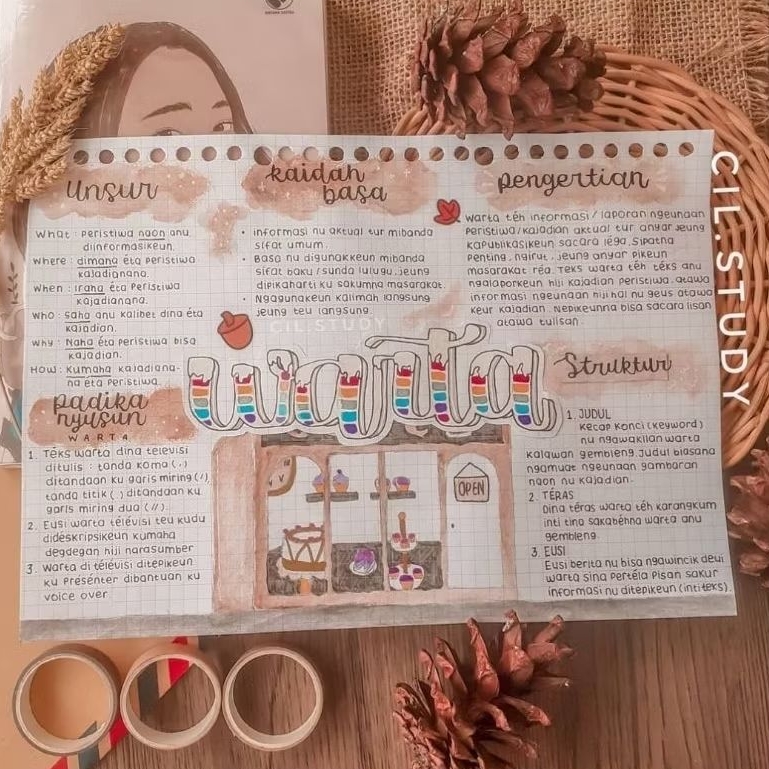 unsur
What : peristiwa naon anu
diinformasikeun.
Where : dimana éta peristiwa
kajadianana.
When : iraha éta peristiwa
kajadianana.
Who : saha anu kalibet dina éta
kajadian.
Why : Naha éta peristiwa bisa
kajadian.
How : kumaha kajadiana-
na éta peristiwa.
kaidah
basa
• informasi nu aktual tur mibanda
sifat umum.
• Basa nu digunakkeun mibanda
sifat baku / sunda lulugu, jeung
dipikaharti ku sakumna masarakat.
• Ngagunakeun kalimah langsung
jeung teu langsung.
pengertian
warta téh informasi / laporan ngeunaan
peristiwa/kajadian aktual tur anyar jeung
kapublikasikeun sacara léga. Sipatna
penting, ngirut, jeung anyar pikeun
masarakat réa. Teks warta téh téks anu
ngalaporkeun hiji kajadian peristiwa, atawa
informasi ngeunaan hiji hal nu geus atawa
keur kajadian. Nepikeunna bisa sacara lisan
atawa tulisan.
CIL.STUDY
CIL.STUDY
warta
padika
nyusun
WARTA
1. Téks warta dina televisi
ditulis : tanda koma (,)
ditandaan ku garis miring (/),
tanda titik ( ) ditandaan ku
garis miring dua (//).
2. Eusi warta télévisi teu kudu
didéskripsikeun kumaha
degdegan hiji narasumber
3. Warta di télévisi ditepikeun
ku presenter dibantuan ku
voice over.
OPEN
Struktur
1. JUDUL
Kecap konci (keyword)
nu ngawakilan warta
kalawan gembleng. Judul biasana
ngamuat ngeunaan gambaran
naon nu kajadian.
2. TÉRAS
Dina téras warta téh karangkum
inti tina sakabéhna warta anu
gembleng.
3. EUSI
Eusi berita nu bisa ngawincik deui
warta sina pertéla pisan sakur
informasi nu ditepikeun (inti teks).